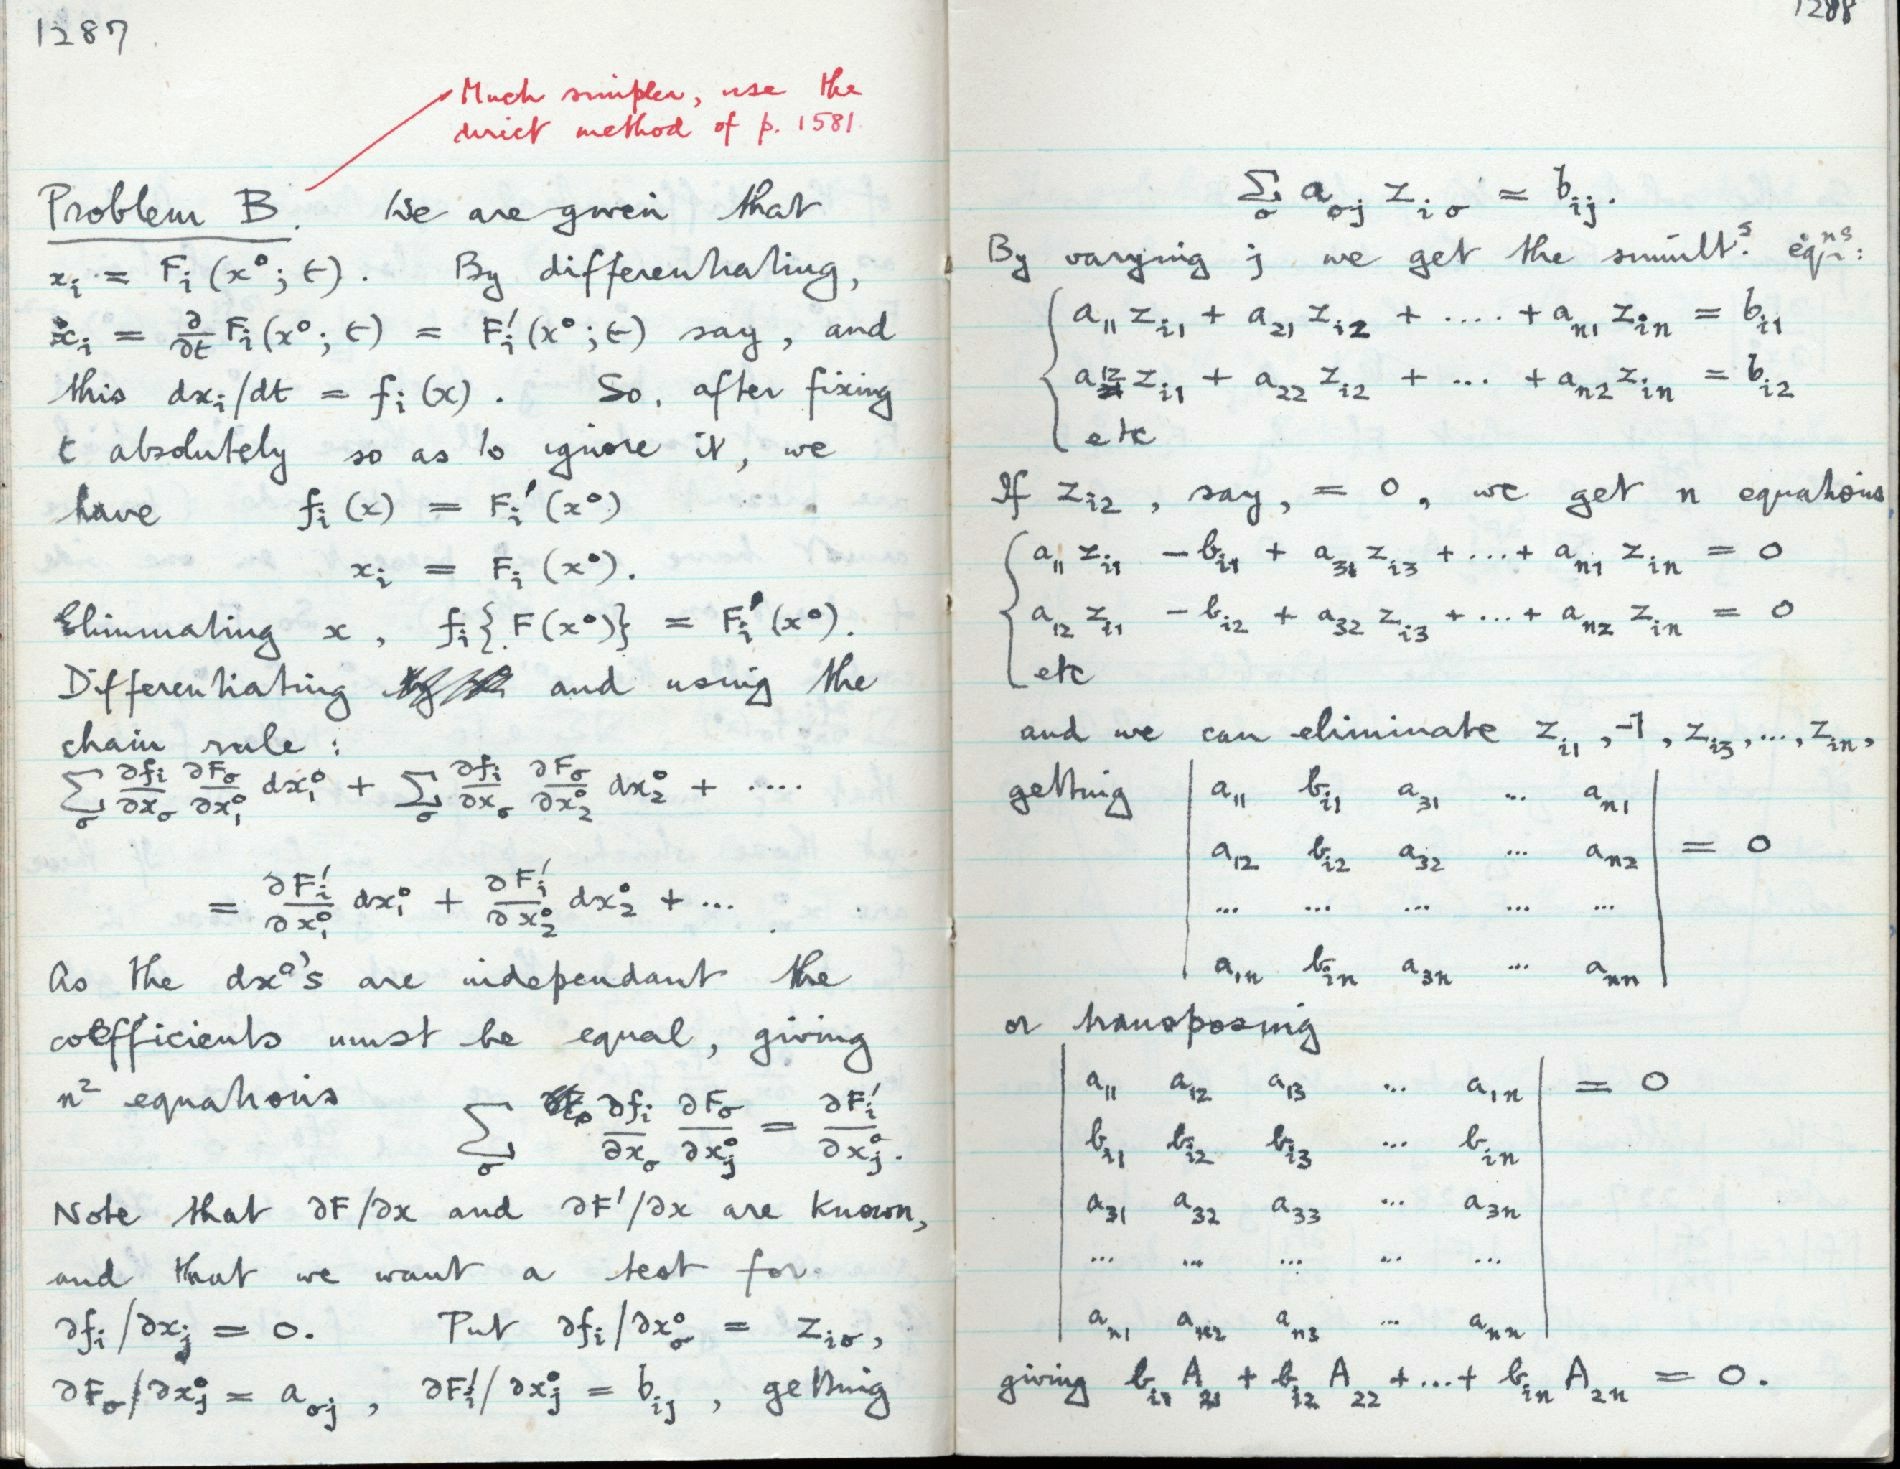 1287
Much simpler, use the
direct method of p. 1581
Problem B. We are given that
xᵢ = Fᵢ(x⁰; t). By differentiating,
ẋᵢ = ∂/∂t Fᵢ(x⁰; t) = Fᵢ′(x⁰; t) say, and
this dxᵢ/dt = fᵢ(x). So, after fixing
t absolutely so as to ignore it, we
have fᵢ(x) = Fᵢ′(x⁰)
xᵢ = Fᵢ(x⁰).
Eliminating x, fᵢ{F(x⁰)} = Fᵢ′(x⁰).
Differentiating and using the
chain rule:
∑_σ ∂fᵢ/∂x_σ ∂F_σ/∂x₁⁰ dx₁⁰ + ∑_σ ∂fᵢ/∂x_σ ∂F_σ/∂x₂⁰ dx₂⁰ + ....
= ∂Fᵢ′/∂x₁⁰ dx₁⁰ + ∂Fᵢ′/∂x₂⁰ dx₂⁰ + ... .
As the dx⁰'s are independant the
coefficients must be equal, giving
n² equations ∑_σ ∂fᵢ/∂x_σ ∂F_σ/∂xⱼ⁰ = ∂Fᵢ′/∂xⱼ⁰.
Note that ∂F/∂x and ∂F′/∂x are known,
and that we want a test for
∂fᵢ/∂xⱼ = 0. Put ∂fᵢ/∂x_σ⁰ = z_iσ,
∂F_σ/∂xⱼ⁰ = a_σj, ∂Fᵢ′/∂xⱼ⁰ = b_ij, getting
1288
∑_σ a_σj z_iσ = b_ij.
By varying j we get the simultˢ. eqⁿˢ:
a₁₁ z_i1 + a₂₁ z_i2 + .... + a_n1 z_in = b_i1
a₁₂ z_i1 + a₂₂ z_i2 + ... + a_n2 z_in = b_i2
etc
If z_i2, say, = 0, we get n equations
a₁₁ z_i1 − b_i1 + a₃₁ z_i3 + ... + a_n1 z_in = 0
a₁₂ z_i1 − b_i2 + a₃₂ z_i3 + ... + a_n2 z_in = 0
etc
and we can eliminate z_i1, −1, z_i3, ..., z_in,
getting | a₁₁ b_i1 a₃₁ ... a_n1 |
| a₁₂ b_i2 a₃₂ ... a_n2 | = 0
| ... ... ... ... ... |
| a_1n b_in a_3n ... a_nn |
or transposing
| a₁₁ a₁₂ a₁₃ ... a_1n | = 0
| b_i1 b_i2 b_i3 ... b_in |
| a₃₁ a₃₂ a₃₃ ... a_3n |
| ... ... ... ... ... |
| a_n1 a_n2 a_n3 ... a_nn |
giving b_i1 A₂₁ + b_i2 A₂₂ + ... + b_in A_2n = 0.